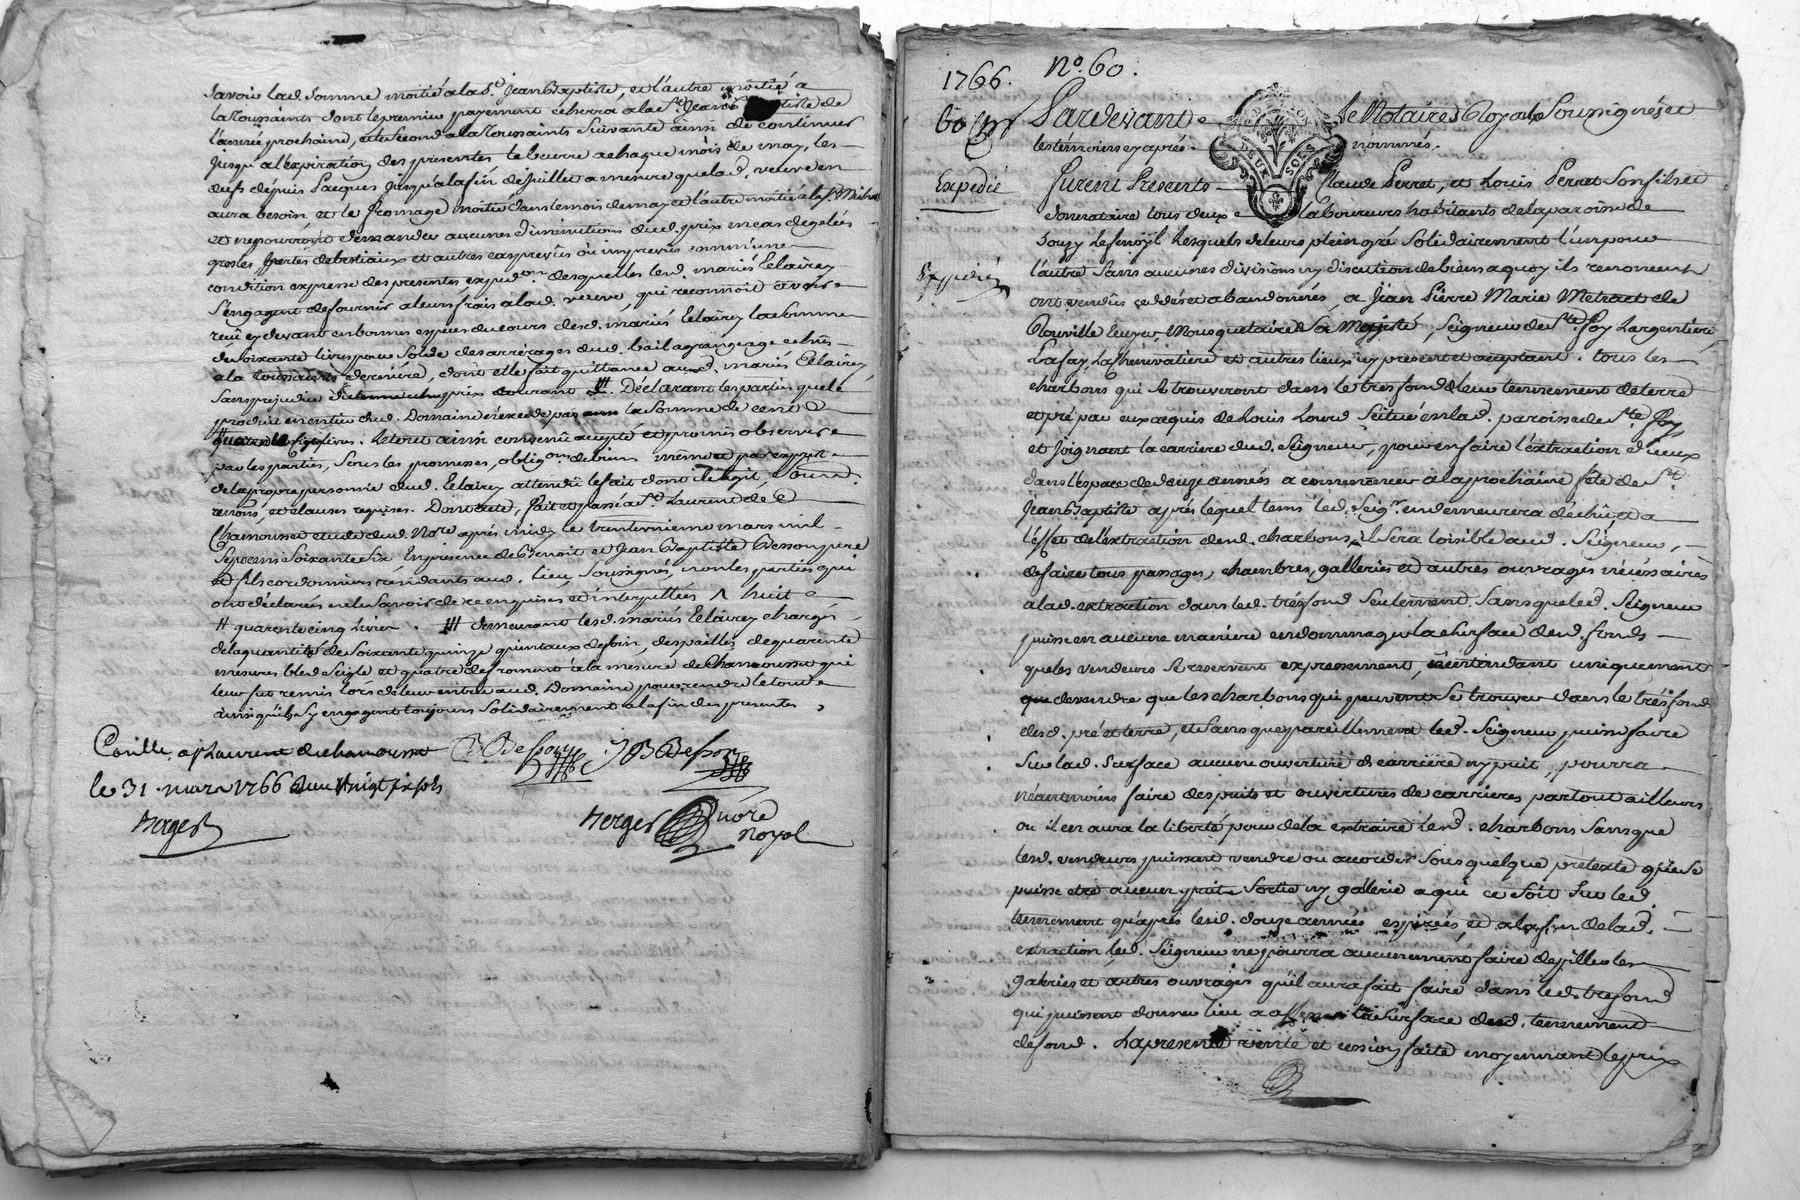 Savoir lad. Somme moitié a la St Jean Baptiste, et l'autre moitié a
la Toussaints dont le premier payement echerra a la St Jean Baptiste de
l'année prochaine, et le Second a la Toussaints Suivante ainsi de continuer
jusqu'a l'expiration des presentes le beurre a chaque mois de may, les
œufs depuis Pacques jusqu'a la fin de Juillet a mesure que lad. veuve en
aura besoin et le fromage moitié dans le mois de may et l'autre moitié a la St
et ne pourront demander aucunes diminutions dud. prix meme cas de gelés
gresles pertes de bestiaux et autres cas prevûs ou imprevûs comme une
condition expresse des presentes, desquelles lesd. mariés Eclairey
S'engagent de fournir a leurs frais a lad. veuve, qui reconnoit avoir
reçû cy devant en bonnes especes du cours desd. mariés Eclairey la somme
de Soixante livres pour Solde des arrérages dud. bail a grangeage echus
a la toussaints derniere, dont elle fait quittance auxd. mariés Eclairey
Sans prejudice courant Declarant les parties que le
produit en entier dud. Domaine n'excede pas la Somme de cent
livres. Le tout ainsi convenû accepté et promis observer
par les parties, Sous les promesses, oblig.ons de biens même par exprès
de la propre personne dud. Eclairey attendû le fait dont Il s'agit,
renons, et clauses requises. Dont acte, fait et passé a St Laurent de
Chamousset etude dud. Nore après midy le trente unieme mars mil
Sept cens Soixante Six, En presence de Benoit et Jean Baptiste Besson pere
et fils cordonniers residants aud. lieu, Soussignés, non les parties qui
ont déclarés ne le Savoir de ce enquises et interpellées huit
# quarente cinq livres. demeurant lesd. mariés Eclairey chargés
de la quantité de Soixante quinze quintaux de foin, des pailles, de quarente
mesures bled Seigle et quatre de froment a la mesure de Chamousset qui
leur fut remis lors de leur entrée aud. Domaine pour rendre le tout
ainsi qu'ils S'y engagent toujours Solidairement a la fin des presentes,
Conille a St Laurent de chamousset B Besson J B Besson
le 31 mars 1766
Berger
Berger Nore
Royal
1766. No. 60.
Pardevant Le Notaire Royal Soussigné et
les témoins cy après nommés.
Expedié
DEUX SOLS
Furent Presents Claude Perret, et Louis Perret Son fils et
donnataire tous deux laboureurs habitants de la paroisse de
Souzy Lesquels de leurs plein gré Solidairement l'un pour
l'autre Sans aucunes divisions ny discution de biens a quoy ils renoncent
Expedié
ont vendûs ceddés et abandonnés, a Jean Pierre Marie Metrat de
Ecuyer, Mousquetaire de Sa Majesté, Seigneur de Ste Foy Largentiere,
Lafay, et autres lieux icy present et acceptant. tous les
charbons qui Se trouveront dans le tresfond de leur tennement de terre
et pré par eux acquis de Louis Scitué en lad. paroisse de Ste Foy
et joignant la carriere dud. Seigneur, pour en faire l'extraction d'iceux
dans l'espace de douze années a commencer a la prochaine fête de St
Jean Baptiste après lequel tems led. Seigr. en demeurera déchû, et a
l'effet de l'extraction desd. charbons, Il Sera loisible aud. Seigneur,
de faire tous passages, chambres, galleries et autres ouvrages nécéssaires
a lad. extraction dans led. tréfond Seulement, Sans que led. Seigneur
puisse en aucune maniere endommager la Surface dud. fonds
que les vendeurs Se reservent expressement, n'entendant uniquement
vendre que les charbons qui peuvent Se trouver dans le tréfond
desd. pré et terre, et Sans que pareillement led. Seigneur puisse faire
Sur lad. Surface aucune ouverture de carriere ny puit, pourra
néantmoins faire des puits et ouvertures de carrieres partout ailleurs
ou il en aura la liberté pour de la extraire lesd. charbons Sans que
lesd. vendeurs puissent vendre ou accorder Sous quelque pretexte que Se
puisse etre aucun puit Sortie ny gallerie a qui ce Soit Sur led.
tennement qu'après lesd. douze années expirées et a la fin de lad.
extraction led. Seigneur ne pourra aucunement faire depiller les
galeries et autres ouvrages qu'il aura fait faire dans led. trefond
qui puissent donner lieu a la Surface dud. tennement
de fond. La presente vente et cession faite moyennant le prix